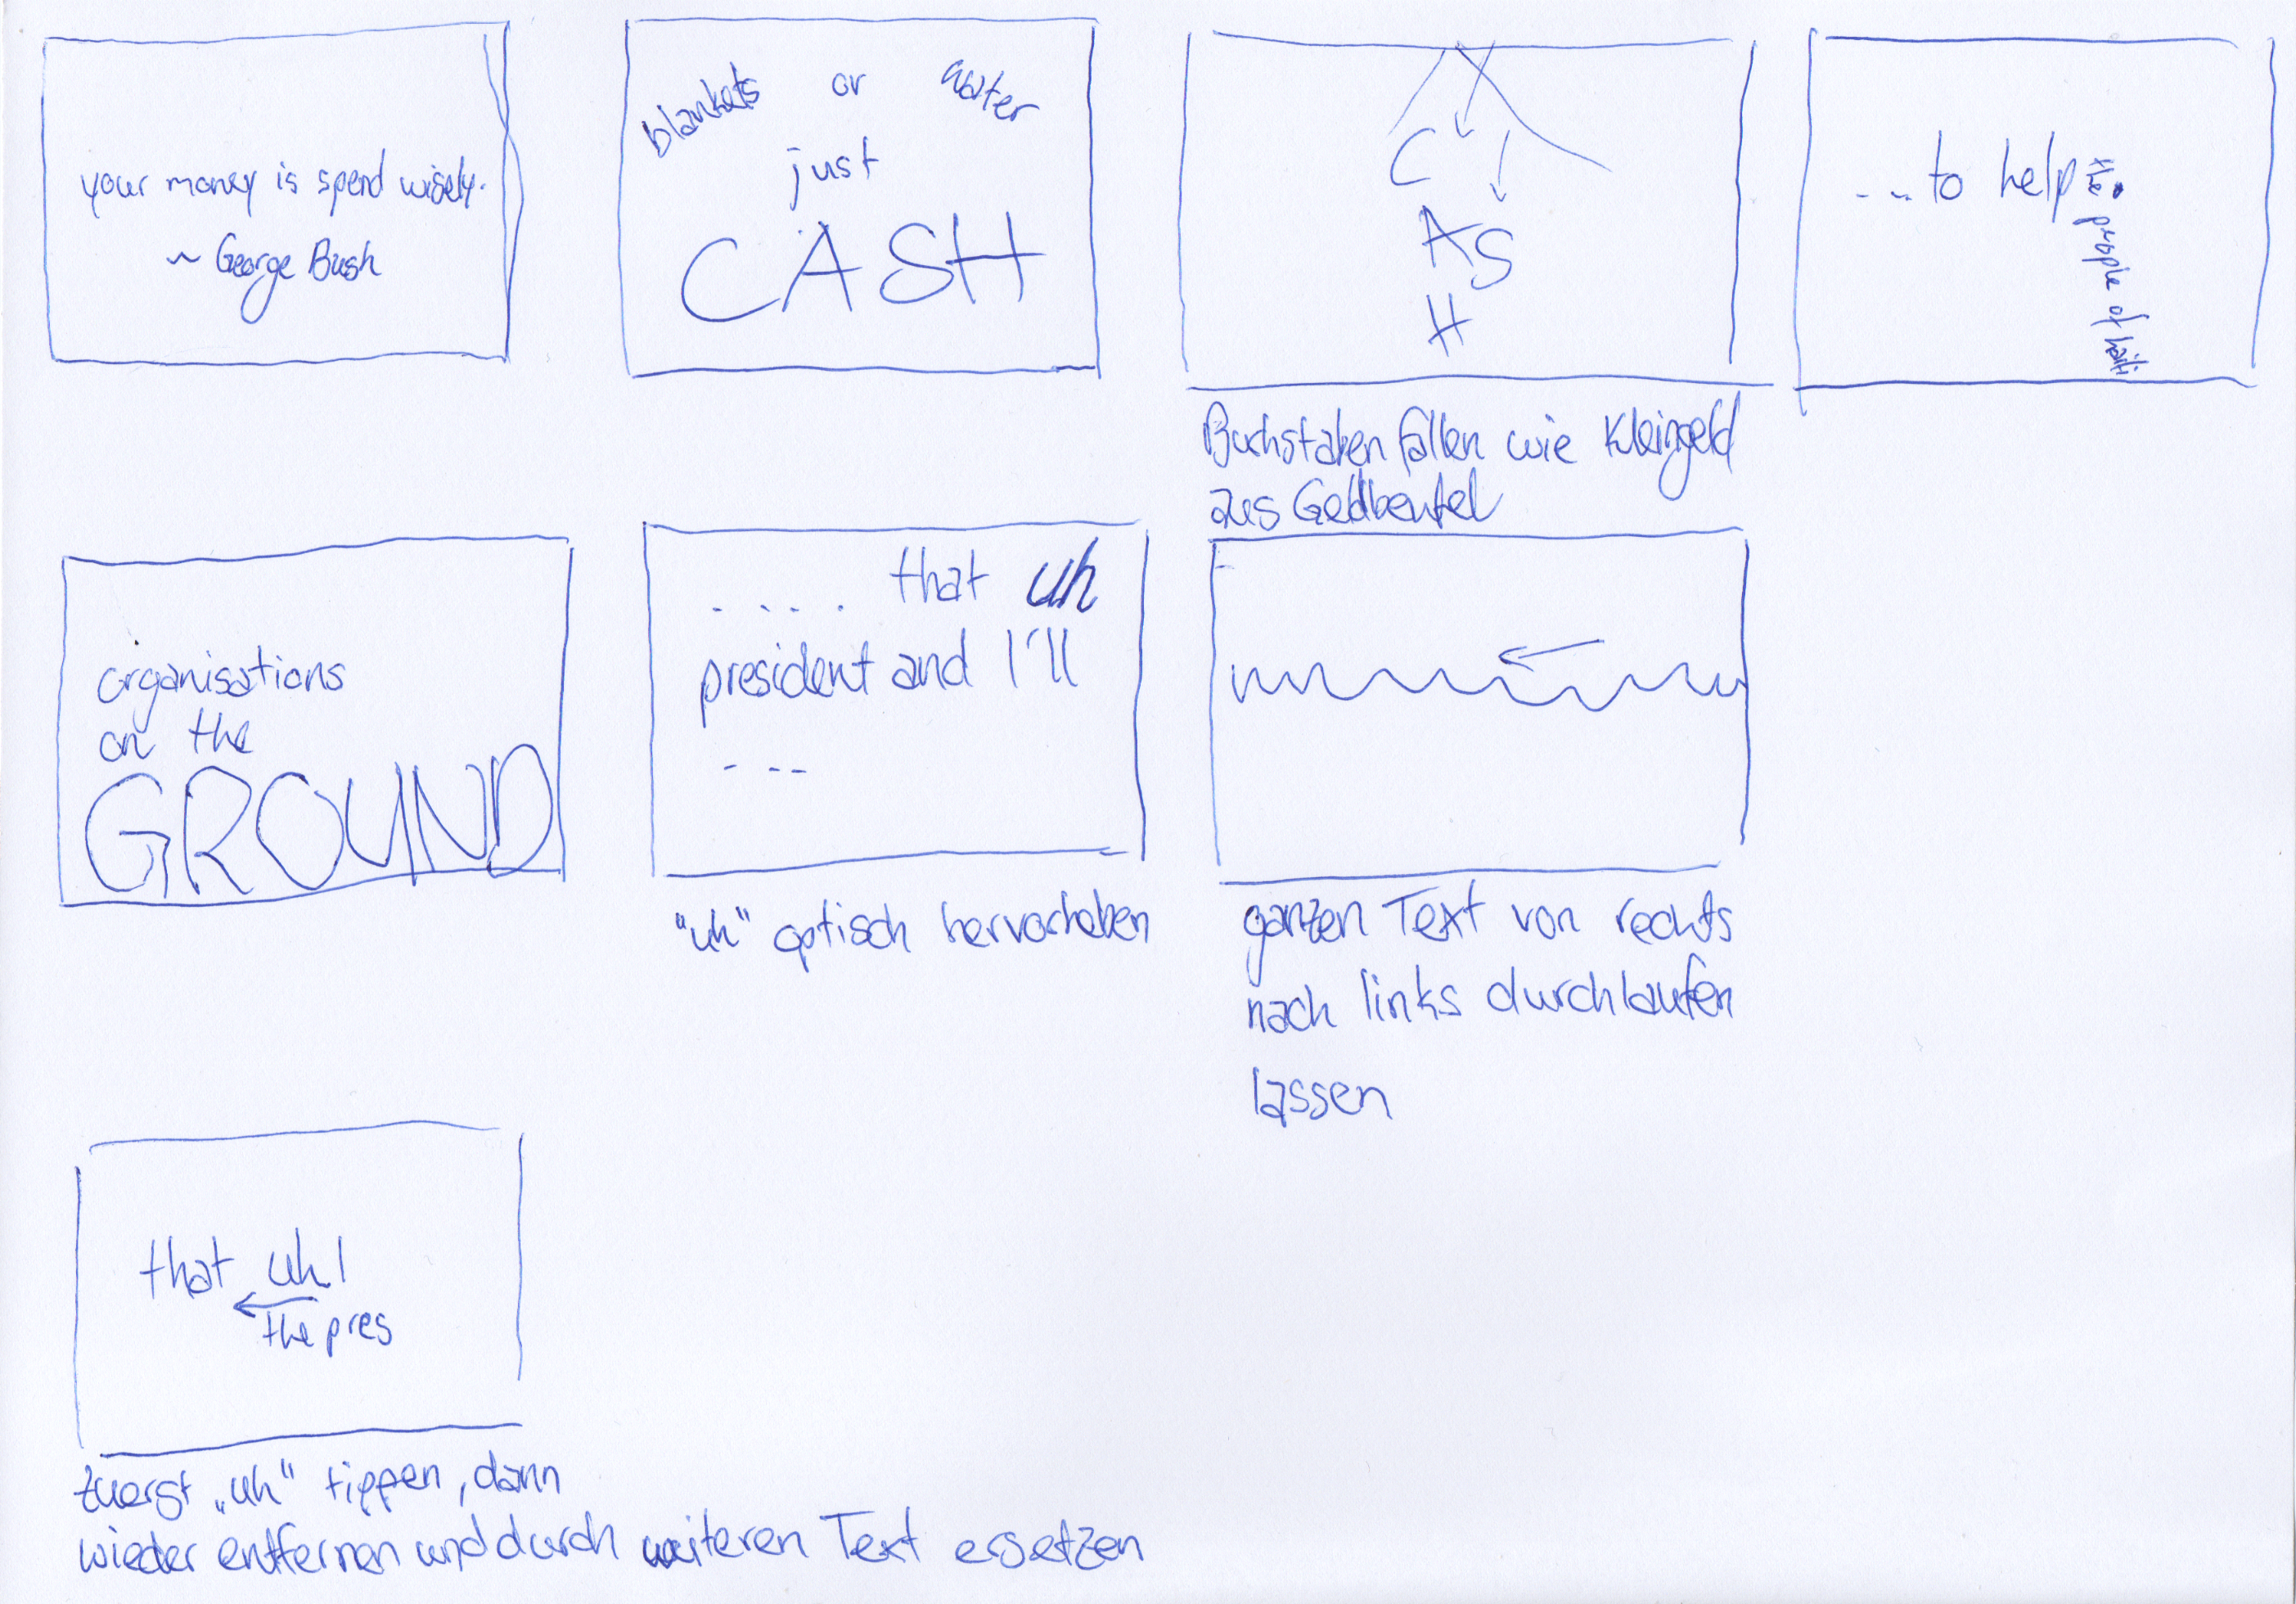 your money is spend wisely.
~ George Bush
blankets or water
just
CASH
C
A S
H
Buchstaben fallen wie Kleingeld
aus Geldbeutel
...to help
the people of haiti
organisations
on the
GROUND
..... that uh
president and I'll
---
"uh" optisch hervorheben
ganzen Text von rechts
nach links durchlaufen
lassen
that uh|
the pres
zuerst „uh" tippen, dann
wieder entfernen und durch weiteren Text ersetzen